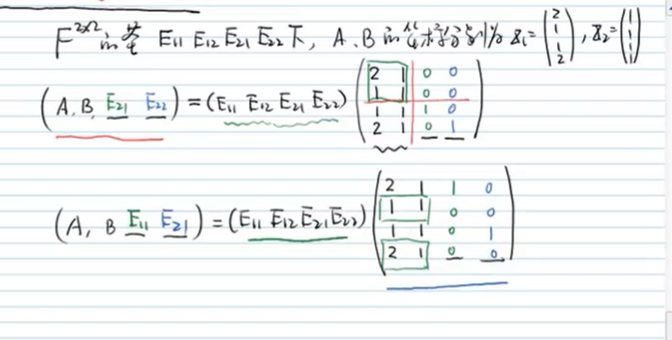 F^{2×2} 的基 E11 E12 E21 E22 下, A、B的坐标分别为 X1=(2 1 1 2), X2=(1 1 1 1)
(A, B, E21 E22) = (E11 E12 E21 E22) (2 1 0 0
1 1 0 0
1 1 1 0
2 1 0 1)
(A, B E11 E21) = (E11 E12 E21 E22) (2 1 1 0
1 1 0 0
1 1 0 1
2 1 0 0)